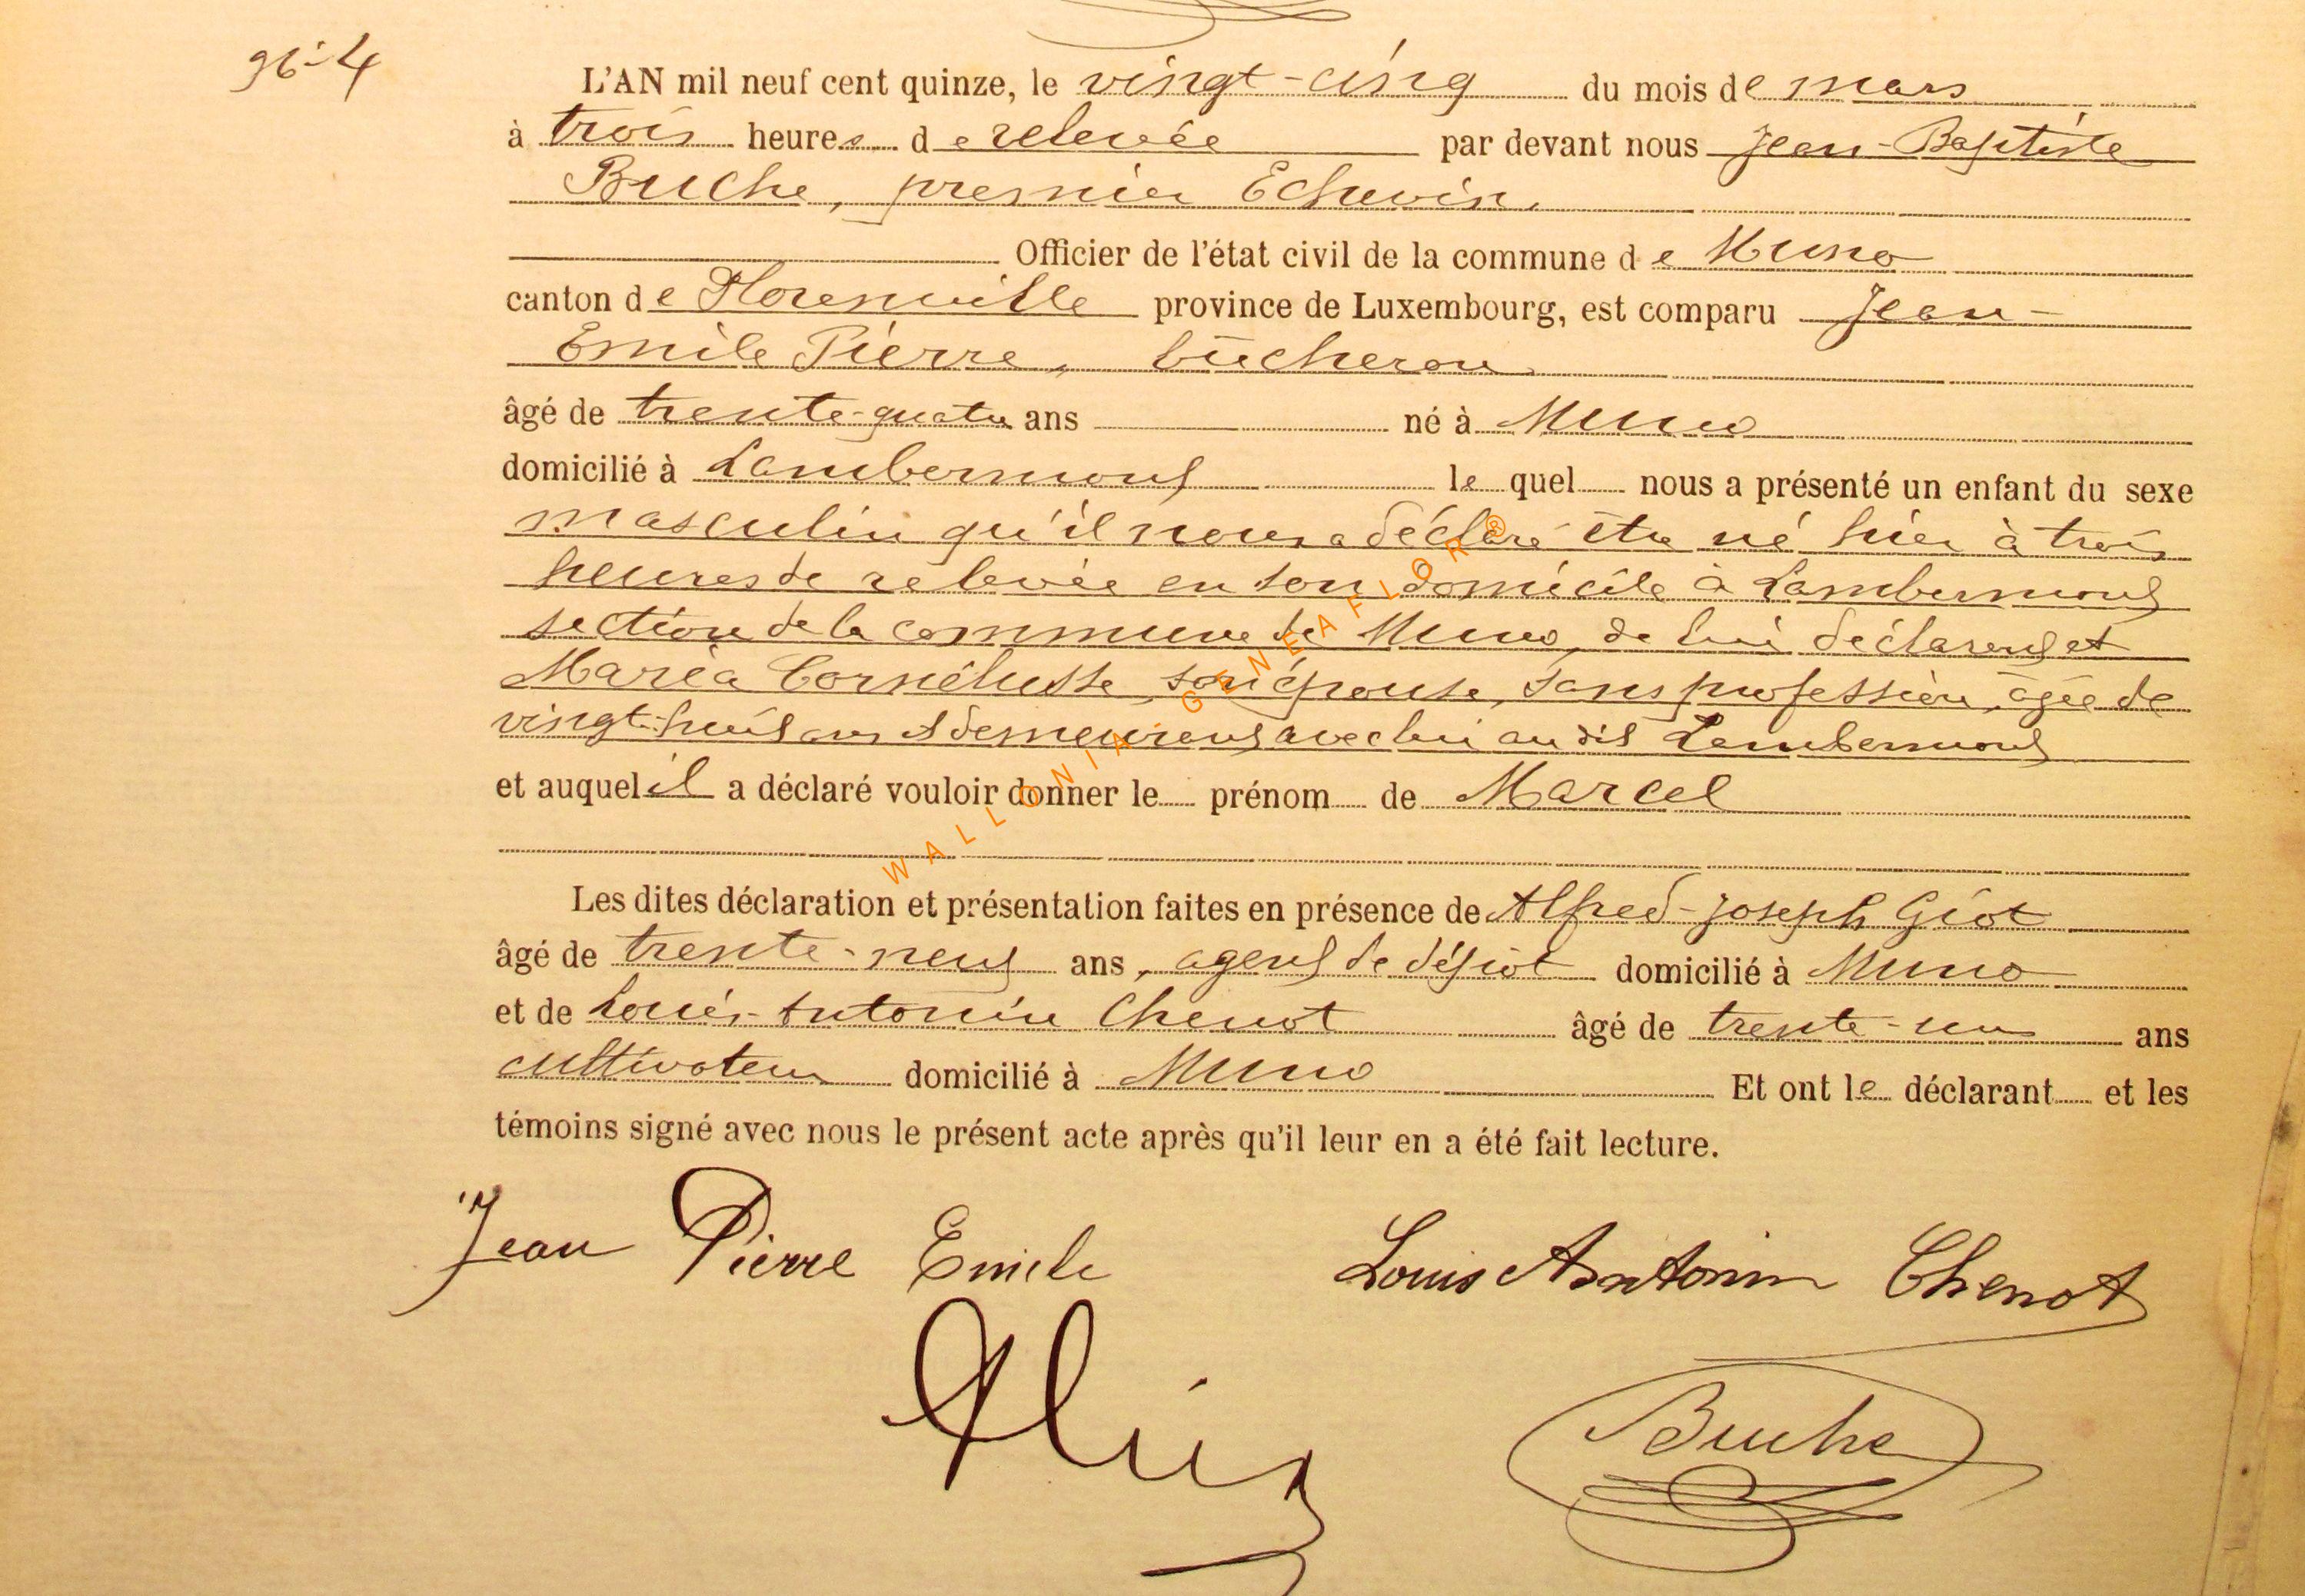 N: 4
L'AN mil neuf cent quinze, le vingt-cinq du mois de mars
à trois heures de relevée par devant nous Jean-Baptiste
Buche, premier Echevin,
Officier de l'état civil de la commune de Muno
canton de Florenville province de Luxembourg, est comparu Jean-
Emile Pierre, bûcheron
âgé de trente-quatre ans né à Muno
domicilié à Lambermont lequel nous a présenté un enfant du sexe
masculin qu'il nous a déclaré être né hier à trois
heures de relevée en son domicile à Lambermont
section de la commune de Muno, de lui déclarant et
Maria Cornélusse, son épouse, sans profession, âgée de
vingt-huit ans et demeurant avec lui au dit Lambermont
et auquel il a déclaré vouloir donner le prénom de Marcel
Les dites déclaration et présentation faites en présence de Alfred-Joseph Giot
âgé de trente-neuf ans, agent de dépôt domicilié à Muno
et de Louis-Antonin Chenot âgé de trente-un ans
cultivateur domicilié à Muno Et ont le déclarant et les
témoins signé avec nous le présent acte après qu'il leur en a été fait lecture.
Jean Pierre Emile Louis Antonin Chenot
Buche
WALLONIA GENEAFLOR®